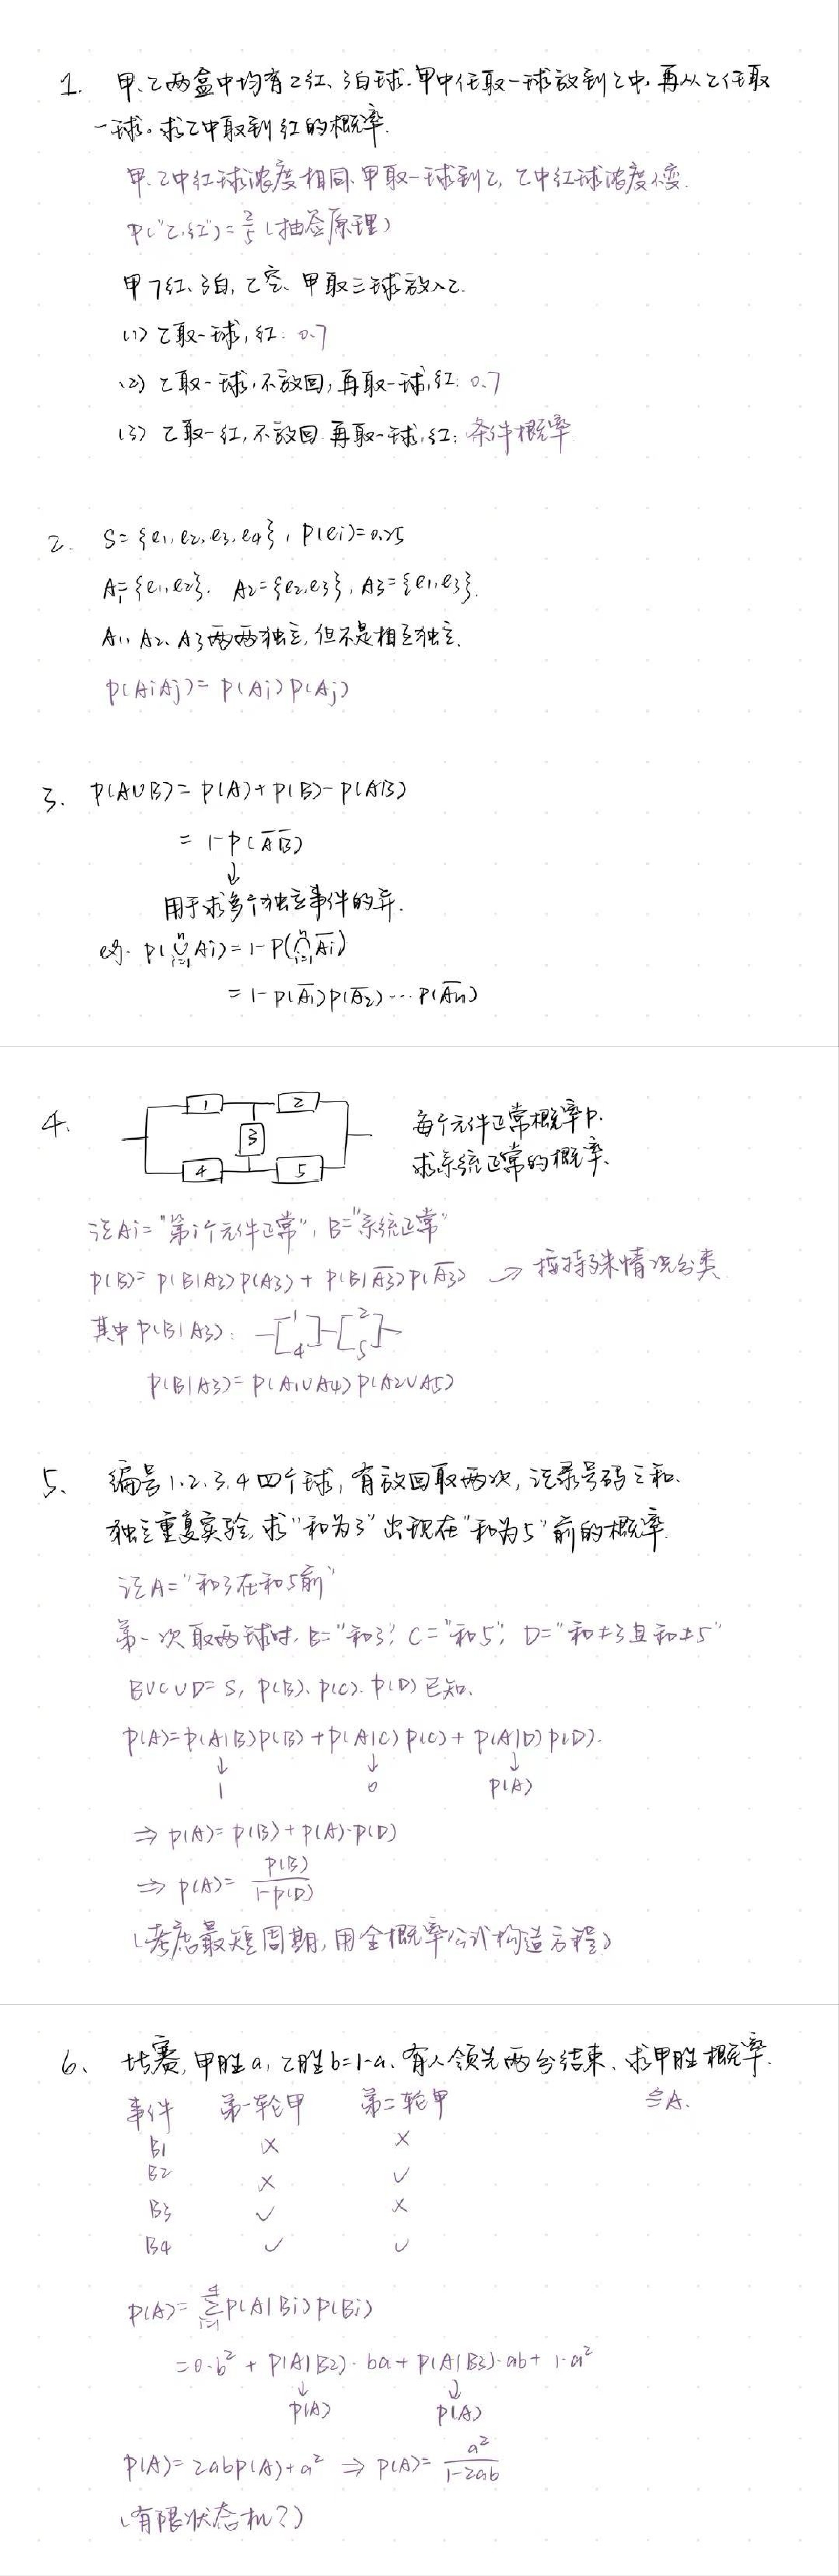 1. 甲、乙两盒中均有2红、3白球.甲中任取一球放到乙中,再从乙任取
一球。求乙中取到红的概率.
甲.乙中红球浓度相同.甲取一球到乙,乙中红球浓度不变.
P("乙,红")=2/5 (抽签原理)
甲7红、3白,乙空、甲取三球放入乙.
(1) 乙取一球,红: 0.7
(2) 乙取一球,不放回,再取一球,红: 0.7
(3) 乙取一红,不放回 再取一球,红: 条件概率
2. S={e1,e2,e3,e4}, P(ei)=0.25
A1={e1,e2}. A2={e2,e3}, A3={e1,e3}.
A1、A2、A3两两独立,但不是相互独立.
P(AiAj)=P(Ai)P(Aj)
3. P(A∪B)=P(A)+P(B)-P(AB)
=1-P(A̅B̅)
↓
用于求多个独立事件的并.
eg. P(⋃ⁿᵢ₌₁Ai)=1-P(⋂ⁿᵢ₌₁A̅i)
=1-P(A̅1)P(A̅2)⋯P(A̅n)
4. 1 2 3 4 5
每个元件正常概率P.
求系统正常的概率.
记Ai="第i个元件正常", B="系统正常"
P(B)=P(B|A3)P(A3)+P(B|A̅3)P(A̅3) → 按特殊情况分类
其中P(B|A3): 1 4 2 5
P(B|A3)=P(A1∪A4)P(A2∪A5)
5、 编号1.2.3.4四个球,有放回取两次,记录号码之和.
独立重复实验,求"和为3"出现在"和为5"前的概率.
记A="和3在和5前"
第一次取两球时,B="和3", C="和5", D="和≠3且和≠5"
B∪C∪D=S, P(B)、P(C).P(D)已知.
P(A)=P(A|B)P(B)+P(A|C)P(C)+P(A|D)P(D).
↓ ↓ ↓
1 0 P(A)
⇒ P(A)=P(B)+P(A)·P(D)
⇒ P(A)=P(B)/(1-P(D))
(考虑最短周期,用全概率公式构造方程)
6、 比赛,甲胜a,乙胜b=1-a、有人领先两分结束、求甲胜概率.
事件 第一轮甲 第二轮甲 ≙A.
B1 × ×
B2 × ✓
B3 ✓ ×
B4 ✓ ✓
P(A)=∑⁴ᵢ₌₁P(A|Bi)P(Bi)
=0·b²+P(A|B2)·ba+P(A|B3)·ab+1·a²
↓ ↓
P(A) P(A)
P(A)=2abP(A)+a² ⇒ P(A)=a²/(1-2ab)
(有限状态机?)